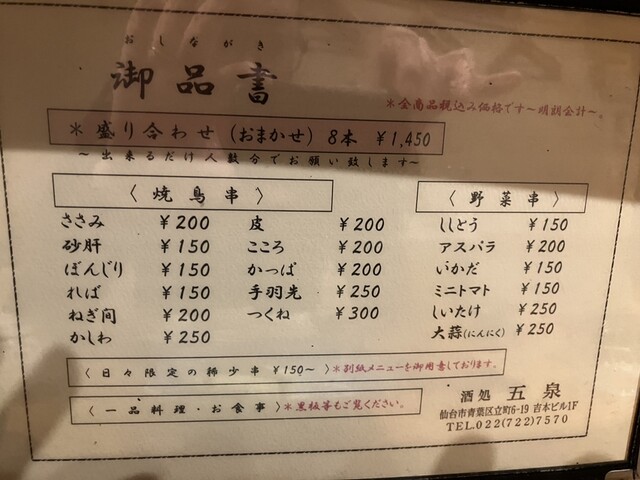 おしながき
御品書
＊全商品税込み価格です～明朗会計～。
＊盛り合わせ（おまかせ）8本 ￥1,450
～出来るだけ人数分でお願い致します～
〈焼鳥串〉
ささみ ￥200 皮 ￥200
砂肝 ￥150 こころ ￥200
ぼんじり ￥150 かっぱ ￥200
ればー ￥150 手羽先 ￥250
ねぎ間 ￥200 つくね ￥300
かしわ ￥250
〈野菜串〉
ししとう ￥150
アスパラ ￥200
いかだ ￥150
ミニトマト ￥150
しいたけ ￥250
大蒜(にんにく) ￥250
〈日々限定の稀少串 ￥150～〉＊別紙メニューを御用意しております。
〈一品料理・お食事〉＊黒板等もご覧ください。
酒処 五泉
仙台市青葉区立町6-19 吉本ビル1F
TEL.022(722)7570